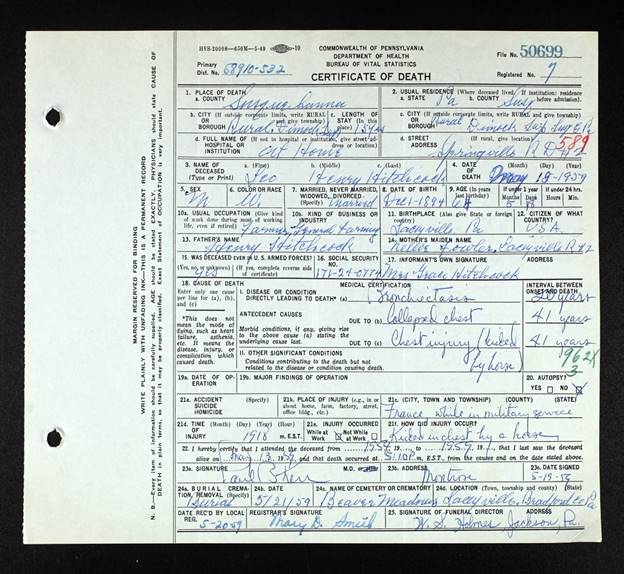 HVS-20008—650M—5-49 10
COMMONWEALTH OF PENNSYLVANIA
DEPARTMENT OF HEALTH
BUREAU OF VITAL STATISTICS
File No. 50699
Primary Dist. No. 58910-532
CERTIFICATE OF DEATH
Registered No. 7
MARGIN RESERVED FOR BINDING
WRITE PLAINLY WITH UNFADING INK—THIS IS A PERMANENT RECORD
N. B.—Every item of information should be carefully supplied. AGE should be stated EXACTLY. PHYSICIANS should state CAUSE OF
DEATH in plain terms, so that it may be properly classified. Exact Statement of OCCUPATION is very important.
1. PLACE OF DEATH
a. COUNTY Susquehanna
2. USUAL RESIDENCE (Where deceased lived. If institution: residence before admission).
a. STATE Pa b. COUNTY Susq
b. CITY (If outside corporate limits, write RURAL OR and give township) BOROUGH Rural Dimock
c. LENGTH OF STAY (in this place)
c. CITY (If outside corporate limits, write RURAL and give township) OR BOROUGH Rural Dimock
d. FULL NAME OF (If not in hospital or institution, give street address or location) HOSPITAL OR INSTITUTION At Home
d. STREET ADDRESS (If rural, give location) Springville R D
589
3. NAME OF DECEASED (Type or Print) a. (First) Leo b. (Middle) Henry c. (Last) Hitchcock
4. DATE OF DEATH (Month) (Day) (Year) May 19-1959
5. SEX M
6. COLOR OR RACE W.
7. MARRIED, NEVER MARRIED, WIDOWED, DIVORCED married
8. DATE OF BIRTH Dec 1-1894
9. AGE (In years last birthday) 64
10a. USUAL OCCUPATION (Give kind of work done during most of working life, even if retired) Farmer
10b. KIND OF BUSINESS OR INDUSTRY
11. BIRTHPLACE (Also give State or foreign country) Laceyville Pa
12. CITIZEN OF WHAT COUNTRY? USA.
13. FATHER'S NAME Henry Hitchcock
14. MOTHER'S MAIDEN NAME Nellie Fowler, Laceyville R #2
15. WAS DECEASED EVER IN U.S. ARMED FORCES? (Yes, no or unknown) (If yes, complete reverse side of certificate) yes
16. SOCIAL SECURITY NO. 171-24-0774
17. INFORMANT'S OWN SIGNATURE Mrs Grace Hitchcock
18. CAUSE OF DEATH
MEDICAL CERTIFICATION
INTERVAL BETWEEN ONSET AND DEATH
Enter only one cause per line for (a), (b), and (c)
I. DISEASE OR CONDITION DIRECTLY LEADING TO DEATH* (a) Bronchiectasis 20 years
*This does not mean the mode of dying, such as heart failure, asthenia, etc. It means the disease, injury, or complication which caused death.
ANTECEDENT CAUSES
Morbid conditions, if any, giving rise to the above cause (a) stating the underlying cause last.
Collapsed chest 41 years
Chest injury (kicked by horse) 41 years
962X
3
II. OTHER SIGNIFICANT CONDITIONS
Conditions contributing to the death but not related to the disease or condition causing death.
19a. DATE OF OPERATION
19b. MAJOR FINDINGS OF OPERATION
20. AUTOPSY? YES NO
21a. ACCIDENT SUICIDE HOMICIDE
21b. PLACE OF INJURY (e.g., in or about home, farm, factory, street, office bldg., etc.)
21c. (CITY, TOWN, AND TOWNSHIP) (COUNTY) (STATE)
France while in military service
21d. TIME OF INJURY (Month) (Day) (Year) (Hour) 1918 m. E.S.T.
21e. INJURY OCCURRED While at Work Not While at Work
21f. HOW DID INJURY OCCUR? Kicked in chest by a horse
22. I hereby certify that I attended the deceased from 1954, to 1959, that I last saw the deceased
alive on May 13, 1959, and that death occurred at 5:10P m., E.S.T., from the causes and on the date stated above.
23a. SIGNATURE Paul B Kerr M.D.
23b. ADDRESS Montrose
23c. DATE SIGNED 5-19-59
24a. BURIAL, CREMATION, REMOVAL (Specify) Burial
24b. DATE 5/21/59
24c. NAME OF CEMETERY OR CREMATORY Beaver Meadows
24d. LOCATION (Town, township and county) (State) Laceyville, Bradford Co Pa
DATE REC'D BY LOCAL REG. 5-20-59
REGISTRAR'S SIGNATURE Mary D. Smith
25. SIGNATURE OF FUNERAL DIRECTOR ADDRESS W. S. Holmes Jackson, Pa.